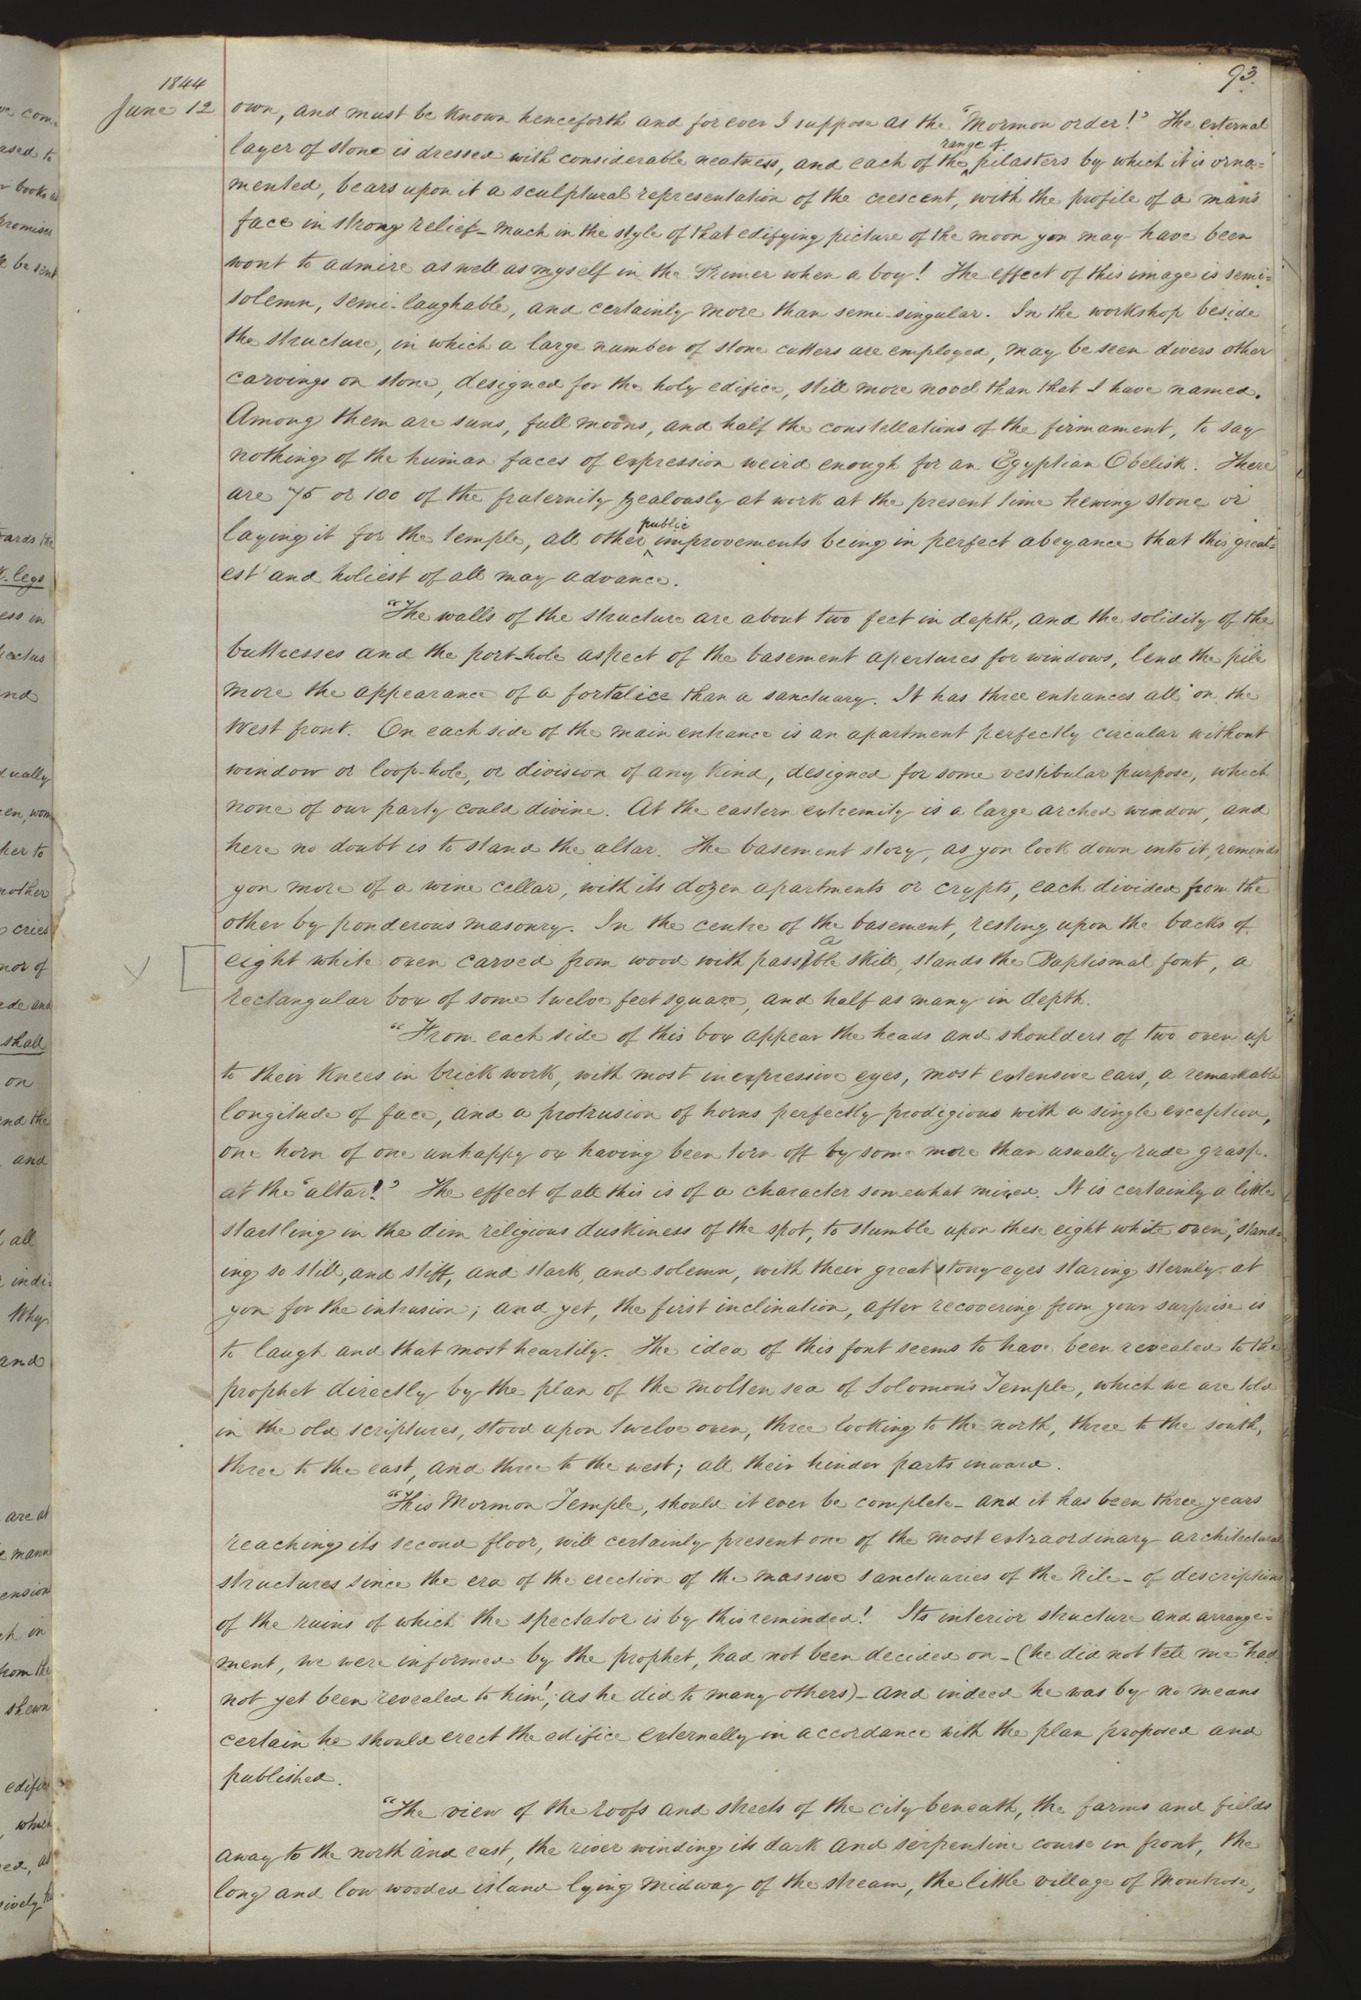 93.
1844
June 12
own, and must be known henceforth and for ever I suppose as the "Mormon order!" The external
range of
layer of stone is dressed with considerable neatness, and each of the ‸ pilasters by which it is orna=
mented, bears upon it a sculptural representation of the crescent, with the profile of a man's
face in strong relief– much in the style of that edifying picture of the moon you may have been
wont to admire as well as myself in the Primer when a boy! The effect of this image is semi=
solemn, semi-laughable, and certainly more than semi-singular. In the workshop beside
the structure, in which a large number of stone cutters are employed, may be seen divers other
carvings on stone, designed for the holy edifice, still more novel than that I have named.
Among them are suns, full moons, and half the constellations of the firmament, to say
nothing of the human faces of expression weird enough for an Egyptian Obelisk. There
are 75 or 100 of the fraternity zealously at work at the present time hewing stone or
public
laying it for the temple, all other ‸ improvements being in perfect abeyance that this great=
est and holiest of all may advance.
"The walls of the structure are about two feet in depth, and the solidity of the
buttresses and the port-hole aspect of the basement apertures for windows, lend the pile
more the appearance of a fortalice than a sanctuary. It has three entrances all on the
West front. On each side of the main entrance is an apartment perfectly circular without
window or loop-hole, or division of any kind, designed for some vestibular purpose, which
none of our party could divine. At the eastern extremity is a large arched window, and
here no doubt is to stand the altar. The basement story, as you look down into it, reminds
you more of a wine cellar, with its dozen apartments or crypts, each divided from the
other by ponderous masonry. In the centre of the basement, resting upon the backs of
eight white oxen carved from wood with passable skill, stands the Baptismal font, a
rectangular box of some twelve feet square, and half as many in depth.
"From each side of this box appear the heads and shoulders of two oxen up
to their knees in brick work, with most inexpressive eyes, most extensive ears, a remarkable
longitude of face, and a protrusion of horns perfectly prodigious with a single exception,
one horn of one unhappy ox having been torn off by some more than usually rude grasp.
at the "altar!" The effect of all this is of a character somewhat mixed. It is certainly a little
startling in the dim religious duskiness of the spot, to stumble upon these eight white oxen, stand=
ing so still, and stiff, and stark, and solemn, with their great stony eyes staring sternly at
you for the intrusion; and yet, the first inclination, after recovering from your surprise is
to laugh and that most heartily. The idea of this font seems to have been revealed to the
prophet directly by the plan of the molten sea of Solomon's Temple, which we are told
in the old scriptures, stood upon twelve oxen, three looking to the north, three to the south,
three to the east, and three to the west; all their hinder parts inward.
"This Mormon Temple, should it ever be complete– and it has been three years
reaching its second floor, will certainly present one of the most extraordinary architectural
structures since the era of the erection of the massive sanctuaries of the Nile– of descriptions
of the ruins of which the spectator is by this reminded! Its interior structure and arrange=
ment, we were informed by the prophet, had not been decided on– (he did not tell me "had
not yet been revealed to him", as he did to many others)– and indeed he was by no means
certain he should erect the edifice externally in accordance with the plan proposed and
published.
"The view of the roofs and streets of the city beneath, the farms and fields
away to the north and east, the river winding its dark and serpentine course in front, the
long and low wooded island lying midway of the stream, the little village of Montrose,